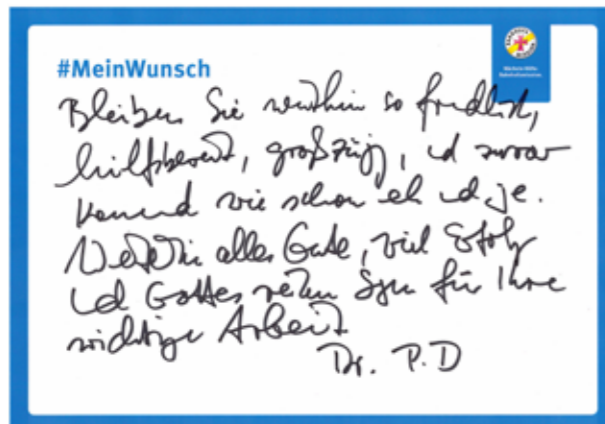 #MeinWunsch
Bleiben Sie weiterhin so freundlich,
hilfsbereit, großzügig, und zuvor
kommend wie schon eh und je.
Weiterhin alles Gute, viel Erfolg
und Gottes reichen Segen für Ihre
wichtige Arbeit
Dr. P.D